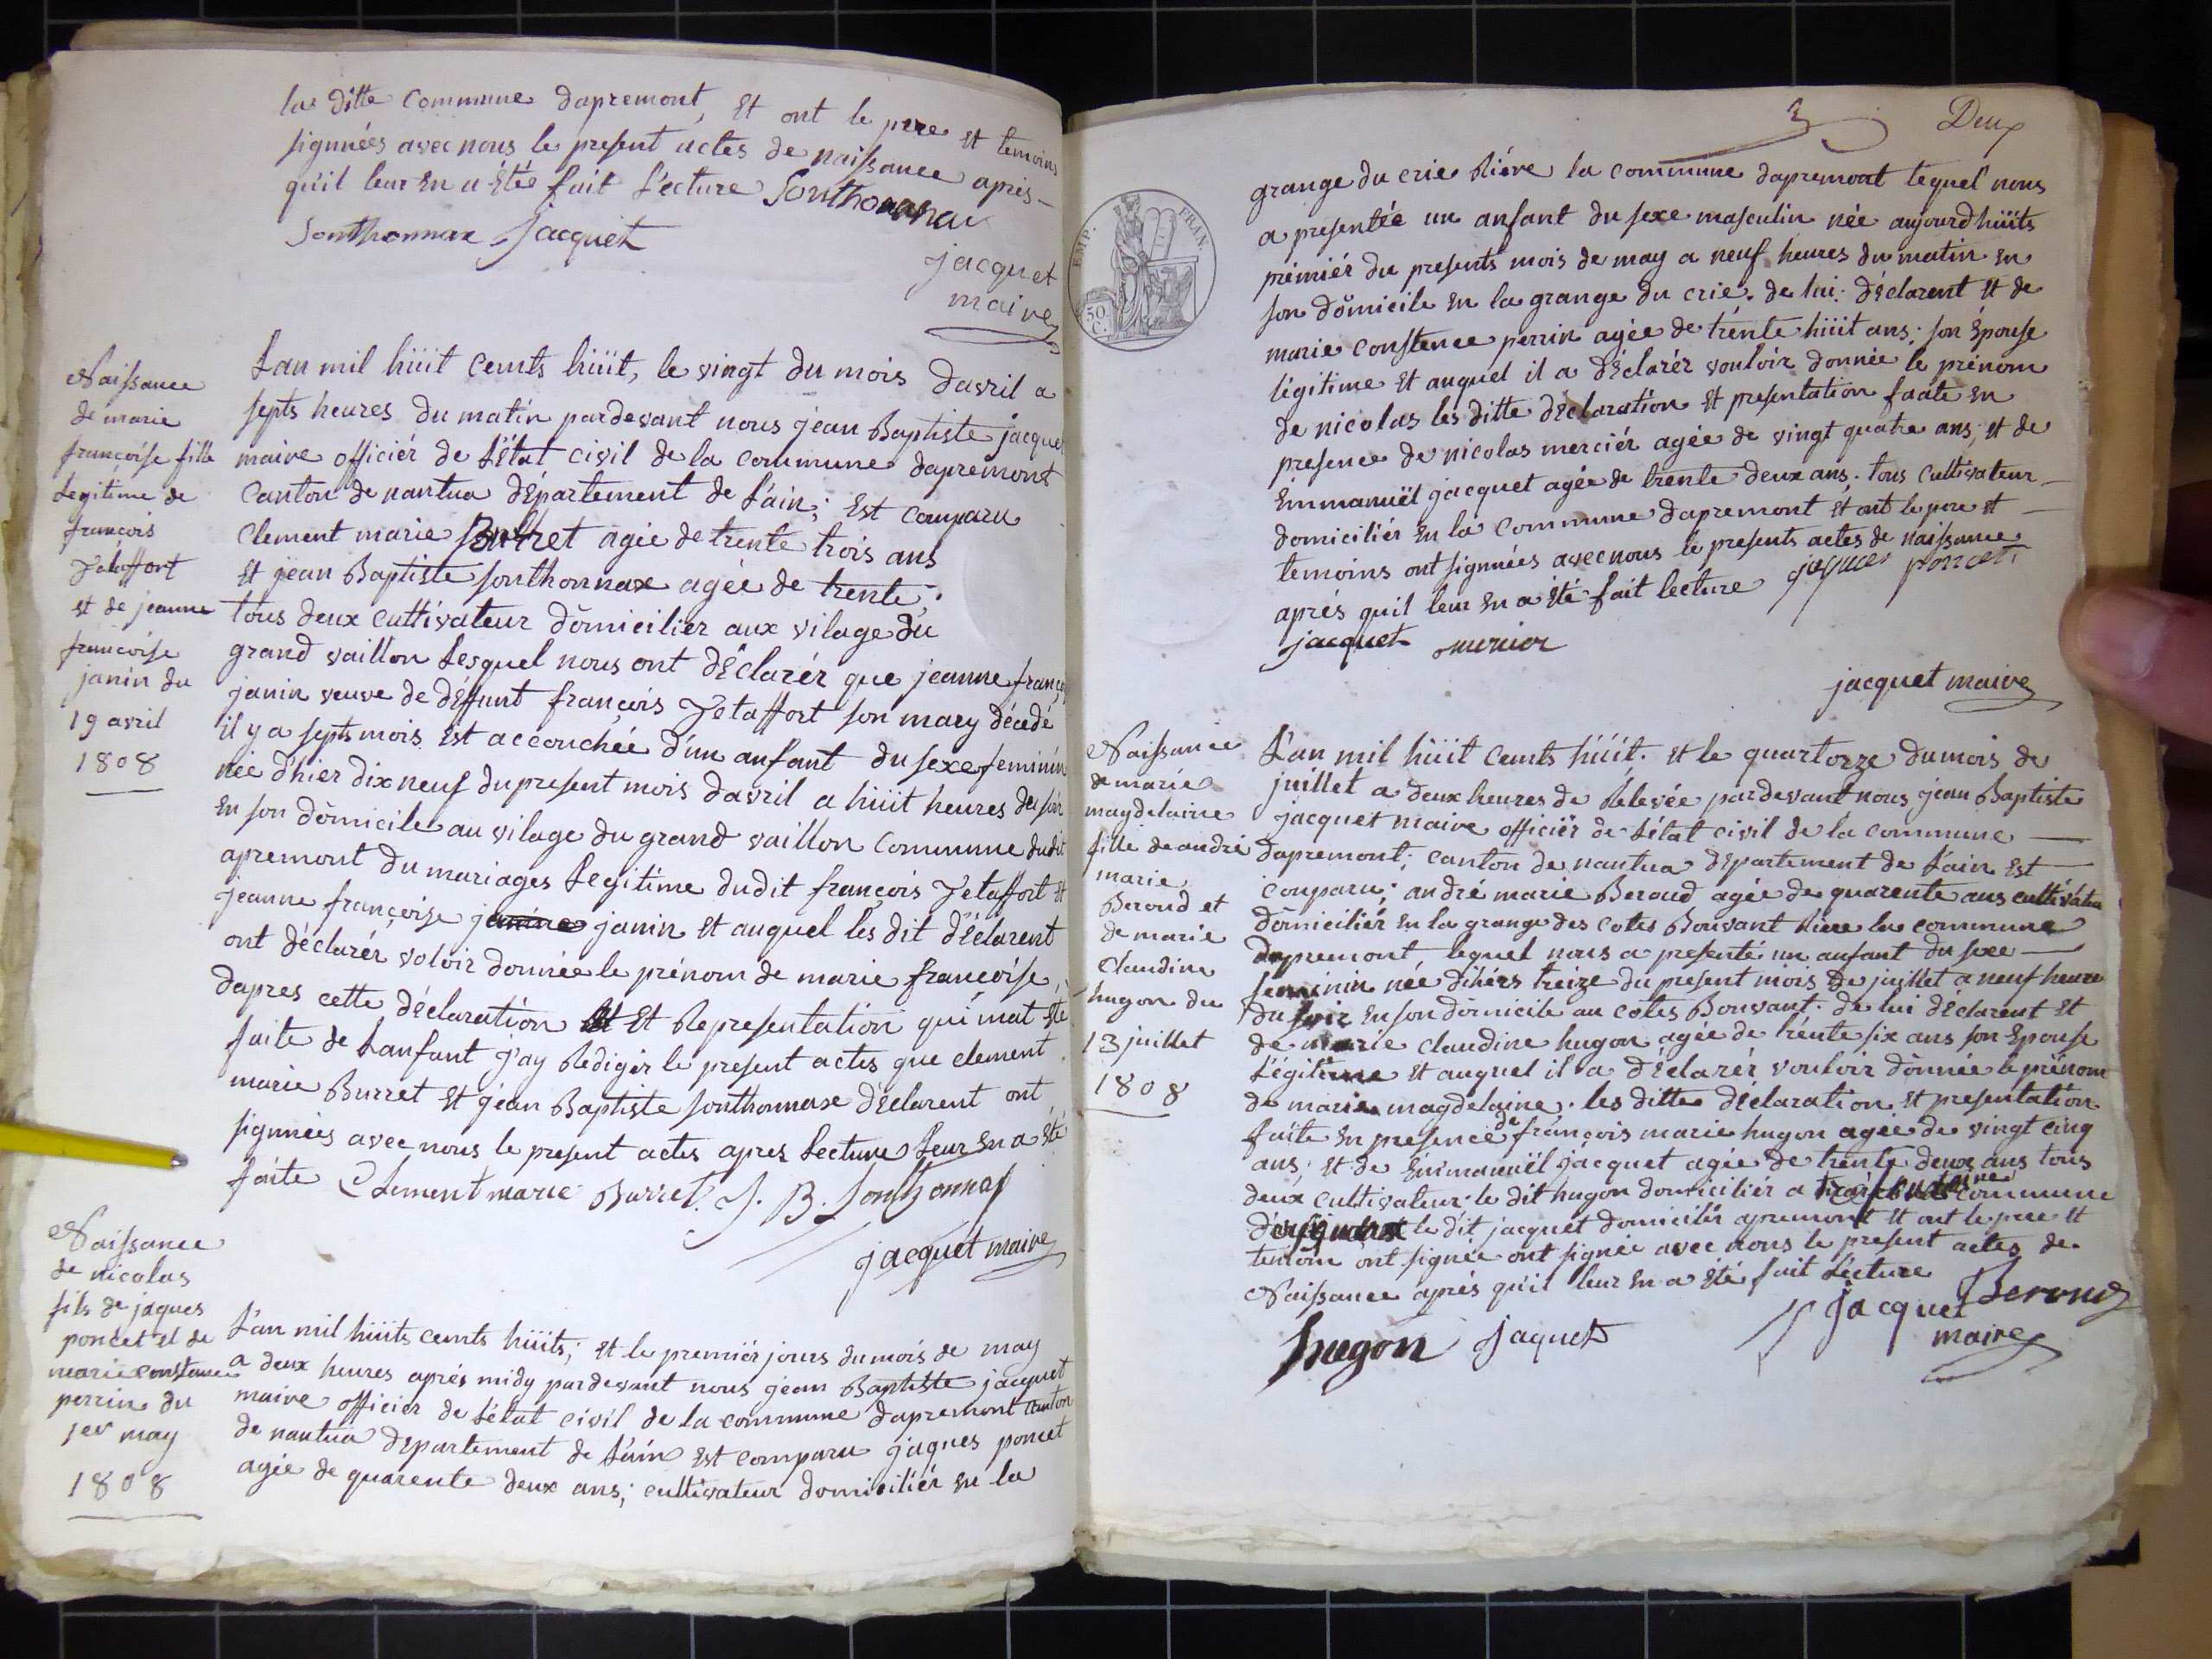 las ditte Commune dapremont, Et ont le pere et temoins
signnées avec nous le present actes de naissance aprés
quil leur En a Étée fait Lecture Sonthonnax
Sonthonnax Jacquet
jacquet
maire
Naissance
de marie
françoise fille
Legitime de
françois
et de jeanne
françoise
janin du
19 avril
1808
Lan mil hüit Cents hüit, le vingt du mois Davril a
septs heures du matin pardevant nous jean Baptiste jacquet
maire officiér de L'état Civil de la Commune dapremont
Canton de nantua département de L'ain; Est Comparu
Clement marie Burret agée de trente trois ans
Et jean Baptiste sonthonnax agée de trente;
tous deux Cultivateur domicilier aux vilage du
grand vaillon Lesquel nous ont dÉclarér que jeanne
janin veuve de deffunt françois son mary décedé
il y a septs mois Est accouchée d'un anfant du sexe feminin
née d'hier dix neuf du present mois davril a hüit heures du soir
En son domicile au vilage du grand vaillon Commune dudit
apremont du mariages Legitime dudit françois Et
jeanne françoise janin Et auquel les dit déclarent
ont déclarér voloir donnée le prénom de marie francoise
dapres cette déclaration Et Representation qui mat Été
faite de Lanfant j'ay Redigér le present actes que clement
marie Burret Et jean Baptiste sonthonnax déclarent ont
signnées avec nous le present actes apres Lecture Leur En a Été
faite Clement marie Burret J. B. Sonthonnax
jacquet maire
Naissance
de nicolas
fils de jaques
poncet et de
marie constance
perrin du
1er may
1808
L'an mil hüits cents hüits; Et le premiér jours du mois de may
a deux heures aprés midy pardevant nous jean Baptiste jacquet
maire officiér de L'état Civil de la commune dapremont Canton
de nantua département de L'ain Est Comparu jaques poncet
agée de quarente deux ans; cultivateur domiciliér En la
Deux
grange du crie Riére la commune dapremont lequel nous
a presentée un anfant du sexe masculin née aujourdhüits
prémiér du presents mois de may a neuf heures du matin En
son domicile En la grange du crie. de lui déclarent Et de
marie constence perrin agée de trénte hüit ans; son Épouse
légitime Et auquel il a déclarér vouloir donnée le prénom
de nicolas les ditte déclaration Et presentation faite En
presence de nicolas merciér agée de vingt quatre ans; et de
Emmanuël jacquet agée de trente deux ans; tous Cultivateur
domiciliér En la Commune dapremont Et ont le pere et
temoins ont signnées avec nous le presents actes de naissance
aprés quil leur En a Été fait lecture jaques poncet
jacquet mercier
jacquet maire
Naissance
de marie
magdelaine
fille de andré
marie
Beroud et
de marie
Claudine
hugon du
13 juillet
1808
L'an mil hüit Cents hüit. Et le quartorze du mois de
juillet a deux heures de Relevée pardevant nous jean Baptiste
jacquet maire officiér de L'état civil de la commune
dapremont; canton de nantua département de L'ain Est
Comparu; andré marie Beroud agée de quarente ans cultivateur
domiciliér En la grange des cotes Bouvant Riere la commune
dapremont, lequel nous a presenté un anfant du sexe
feminin née dihérs treize du present mois de juillet a neuf heure
du soir En son domicile au cotes Bouvant. de lui déclarent Et
de marie claudine hugon agée de trente six ans son Epouse
Légitime Et auquel il a déclarér vouloir donnée le prénom
de marie magdelaine. les ditte déclaration Et presentation
faite En presence de françois marie hugon agée de vingt cinq
ans; Et de Emmanuël jacquet agée de trente deux ans tous
deux cultivateur le dit hugon domiciliér a commune
le dit jacquet domiciliér apremont Et ont le pere et
temoin ont signée ont signée avec nous le present actes de
Naissance aprés qu'il leur En a Été fait Lecture
Beroud
hugon jaquet jacquet
maire